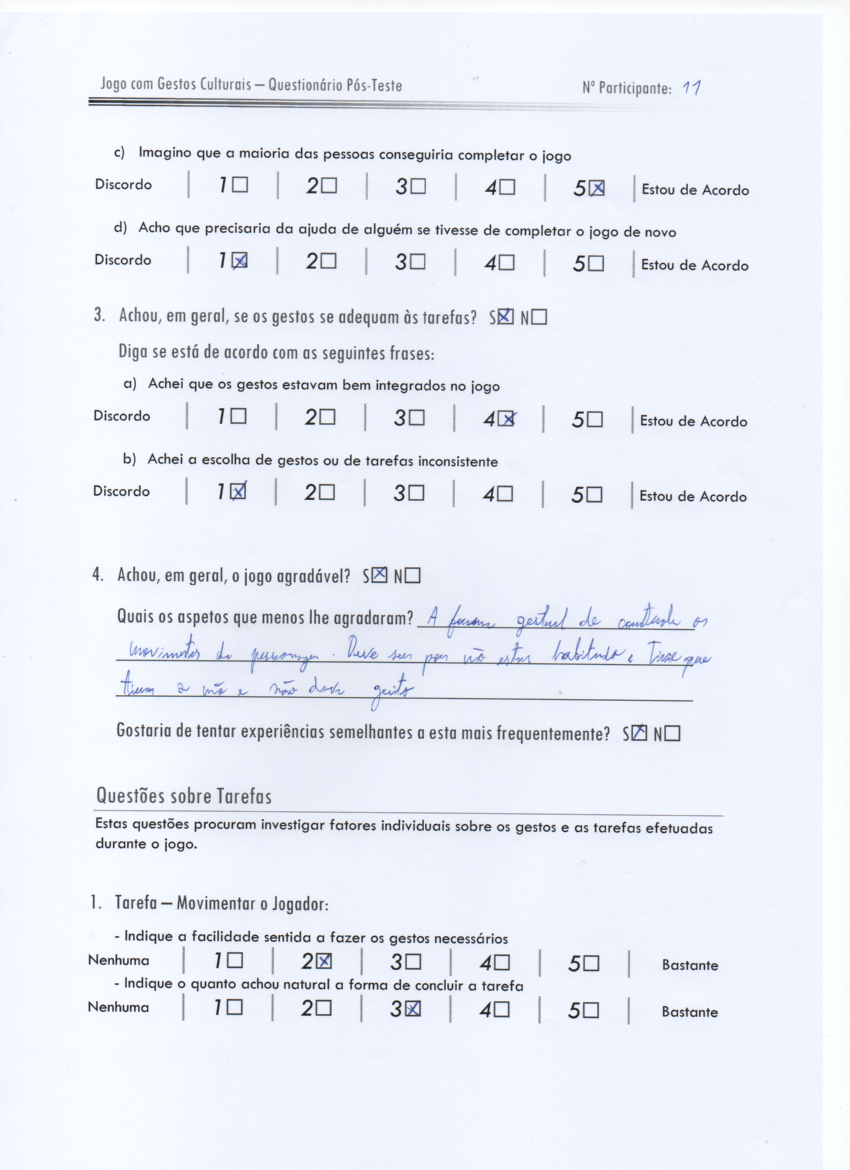 Jogo com Gestos Culturais – Questionário Pós-Teste Nº Participante: 11
c) Imagino que a maioria das pessoas conseguiria completar o jogo
Discordo | 1☐ | 2☐ | 3☐ | 4☐ | 5☒ | Estou de Acordo
d) Acho que precisaria da ajuda de alguém se tivesse de completar o jogo de novo
Discordo | 1☒ | 2☐ | 3☐ | 4☐ | 5☐ | Estou de Acordo
3. Achou, em geral, se os gestos se adequam às tarefas? S☒ N☐
Diga se está de acordo com as seguintes frases:
a) Achei que os gestos estavam bem integrados no jogo
Discordo | 1☐ | 2☐ | 3☐ | 4☒ | 5☐ | Estou de Acordo
b) Achei a escolha de gestos ou de tarefas inconsistente
Discordo | 1☒ | 2☐ | 3☐ | 4☐ | 5☐ | Estou de Acordo
4. Achou, em geral, o jogo agradável? S☒ N☐
Quais os aspetos que menos lhe agradaram? A forma gestual de controle os
movimentos do personagem. Deve ser por não estar habituado e
a mão e não dar jeito
Gostaria de tentar experiências semelhantes a esta mais frequentemente? S☒ N☐
Questões sobre Tarefas
Estas questões procuram investigar fatores individuais sobre os gestos e as tarefas efetuadas
durante o jogo.
1. Tarefa – Movimentar o Jogador:
- Indique a facilidade sentida a fazer os gestos necessários
Nenhuma | 1☐ | 2☒ | 3☐ | 4☐ | 5☐ | Bastante
- Indique o quanto achou natural a forma de concluir a tarefa
Nenhuma | 1☐ | 2☐ | 3☒ | 4☐ | 5☐ | Bastante